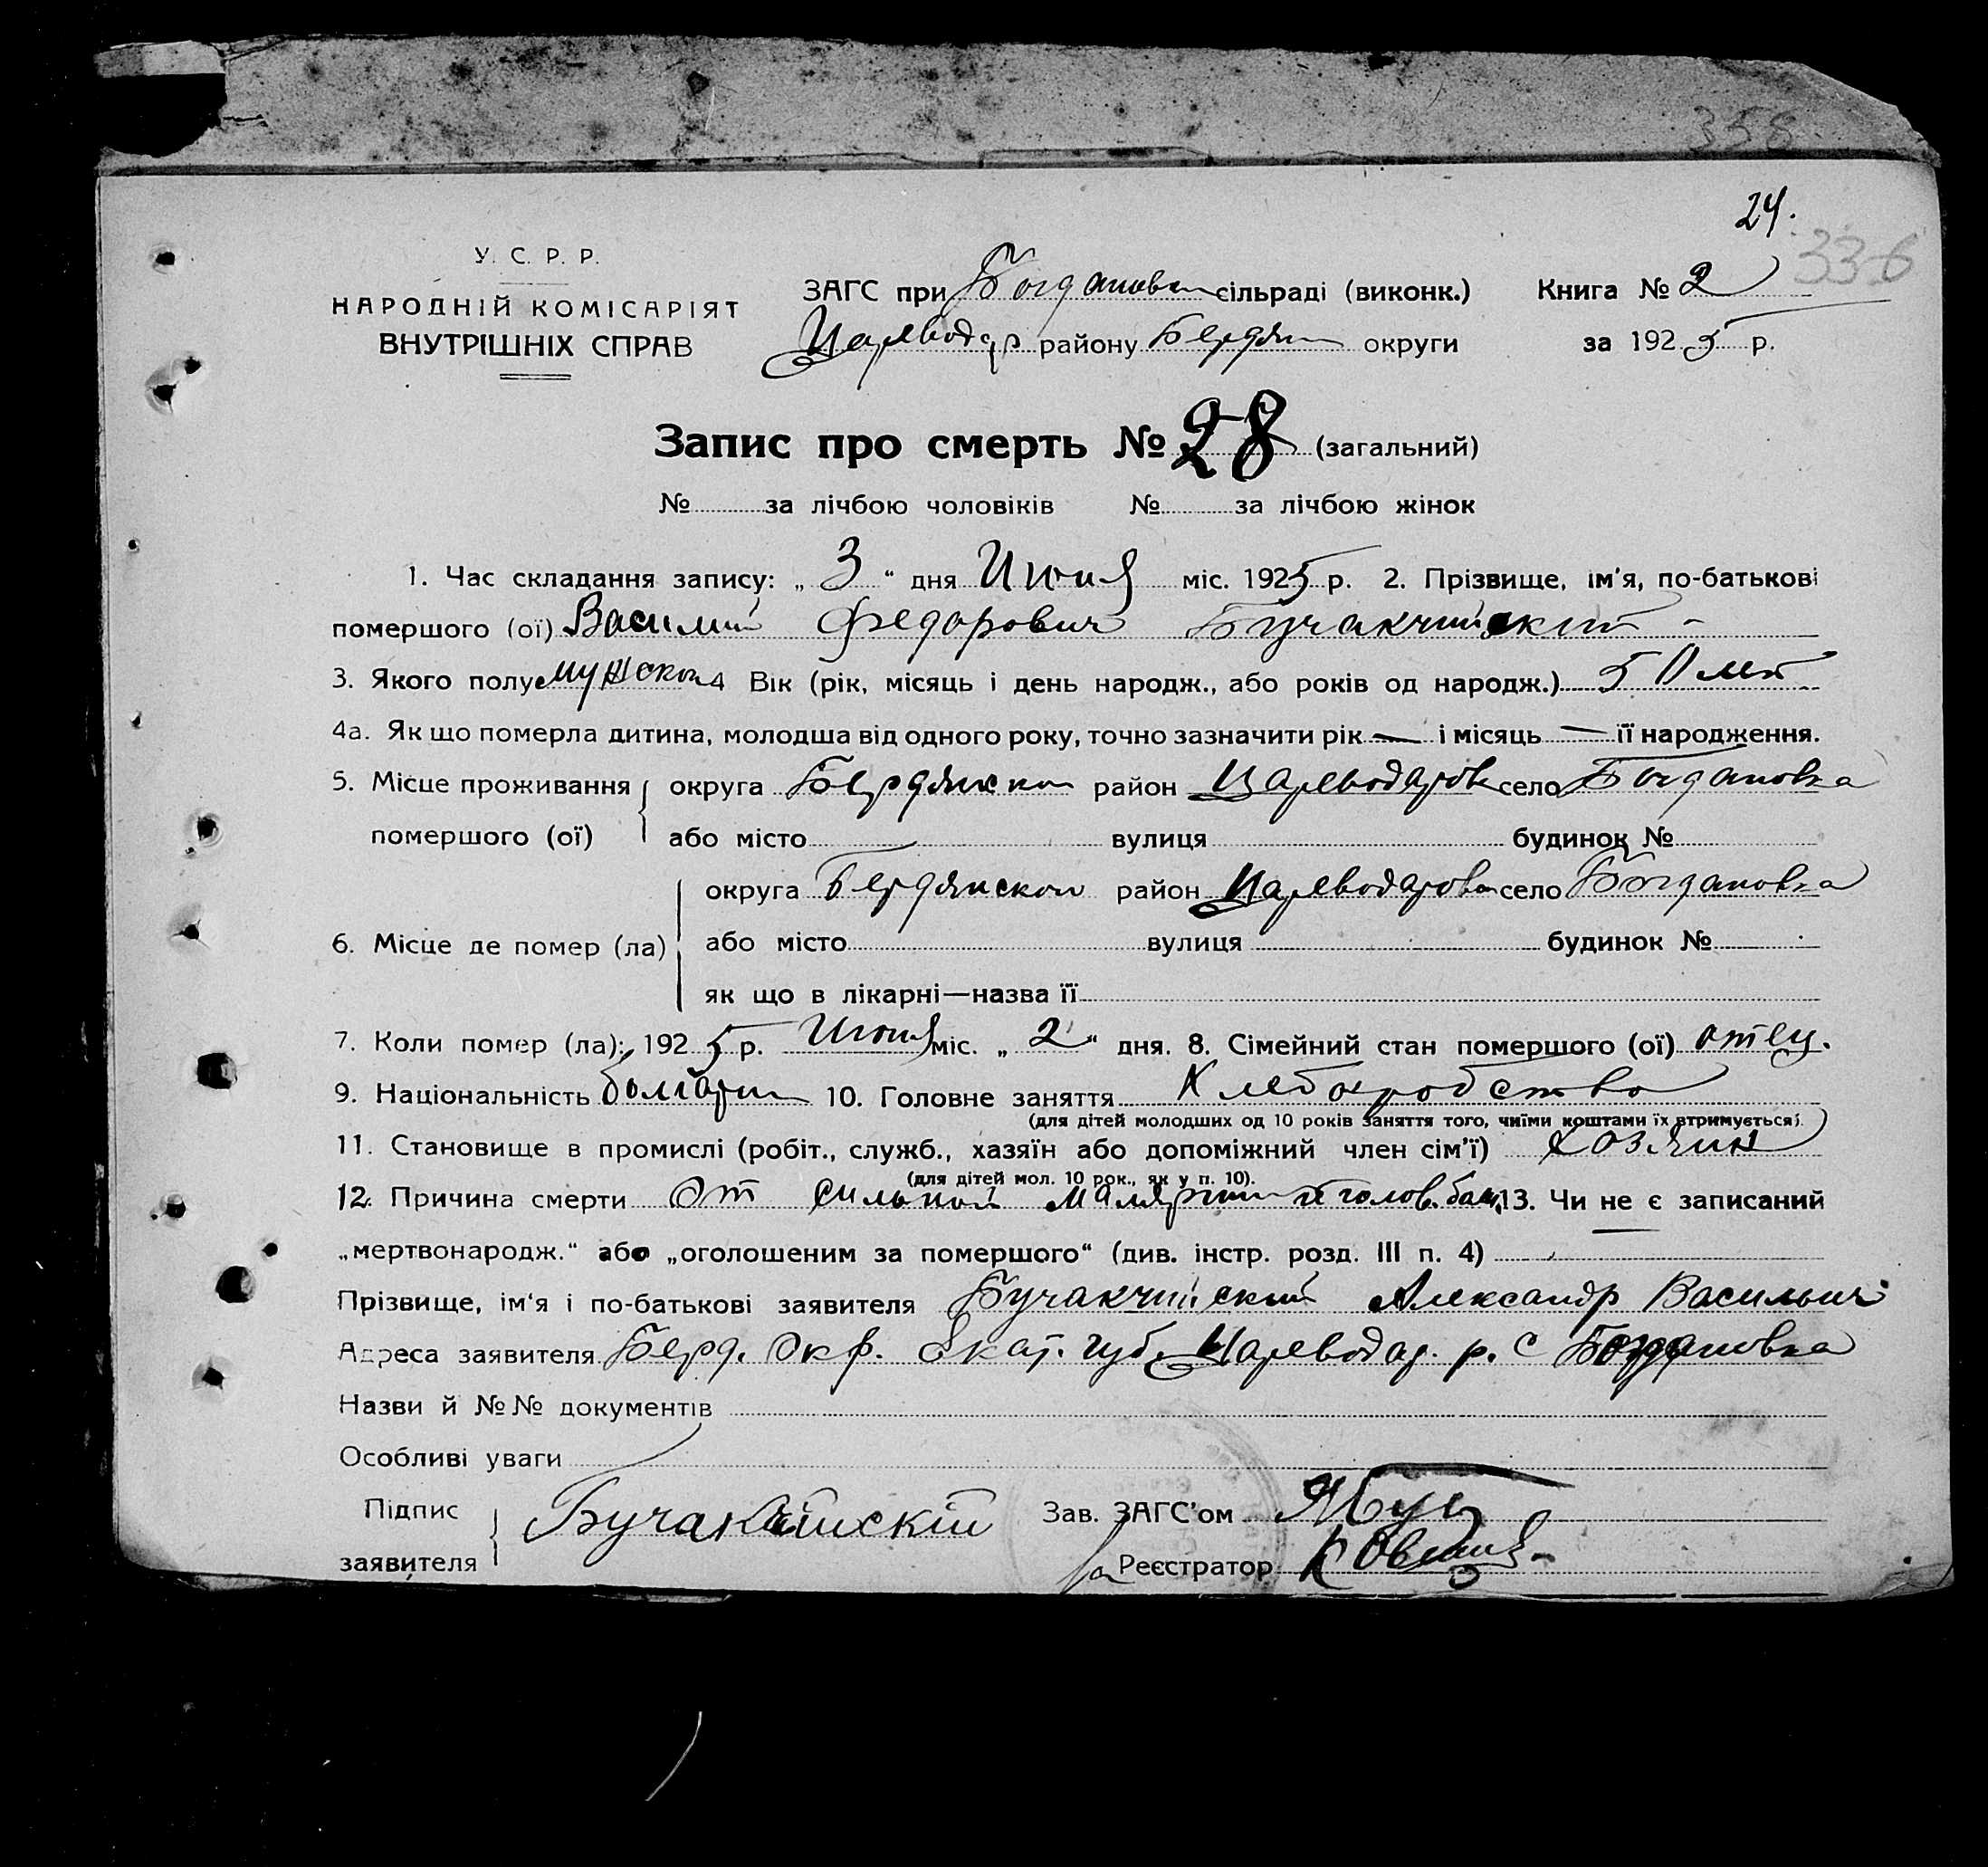 358
24.
336
У. С. Р. Р.
НАРОДНІЙ КОМІСАРІЯТ
ВНУТРІШНІХ СПРАВ
ЗАГС при Богдановск сільраді (виконк.) Книга № 2
Цареводар району Бердян округи за 1925 р.
Запис про смерть № 28 (загальний)
№ за лічбою чоловіків № за лічбою жінок
1. Час складання запису: „ 3 “ дня Июня міс. 1925 р. 2. Прізвище, ім'я, по-батькові
помершого (ої) Василий Федорович Бучакчийский -
3. Якого полу мужском 4 Вік (рік, місяць і день народж., або років од народж.) 50 лет
4а. Як що померла дитина, молодша від одного року, точно зазначити рік — і місяць — її народження.
5. Місце проживання помершого (ої) округа Бердянском район Цареводаров село Богдановка
або місто вулиця будинок №
6. Місце де помер (ла) округа Бердянском район Цареводаров село Богдановка
або місто вулиця будинок №
як що в лікарні—назва її
7. Коли помер (ла): 1925 р. Июня міс. „ 2 “ дня. 8. Сімейний стан помершого (ої) отец.
9. Національність болгарин 10. Головне заняття Хлеборобство
(для дітей молодших од 10 років заняття того, чиїми коштами їх втримується).
11. Становище в промислі (робіт., служб., хазяїн або допоміжний член сім'ї) хозяин
(для дітей мол. 10 рок., як у п. 10).
12. Причина смерти От сильной малярии и голов. бол. 13. Чи не є записаний
„мертвонародж.“ або „оголошеним за помершого“ (див. інстр. розд. III п. 4)
Прізвище, ім'я і по-батькові заявителя Бучакчийский Александр Васильич
Адреса заявителя Берд. Окр. Екат. губ. Цареводар. р. с Богдановка
Назви й №№ документів
Особливі уваги
Підпис заявителя Бучакчийскій Зав. ЗАГС'ом
за Реєстратор